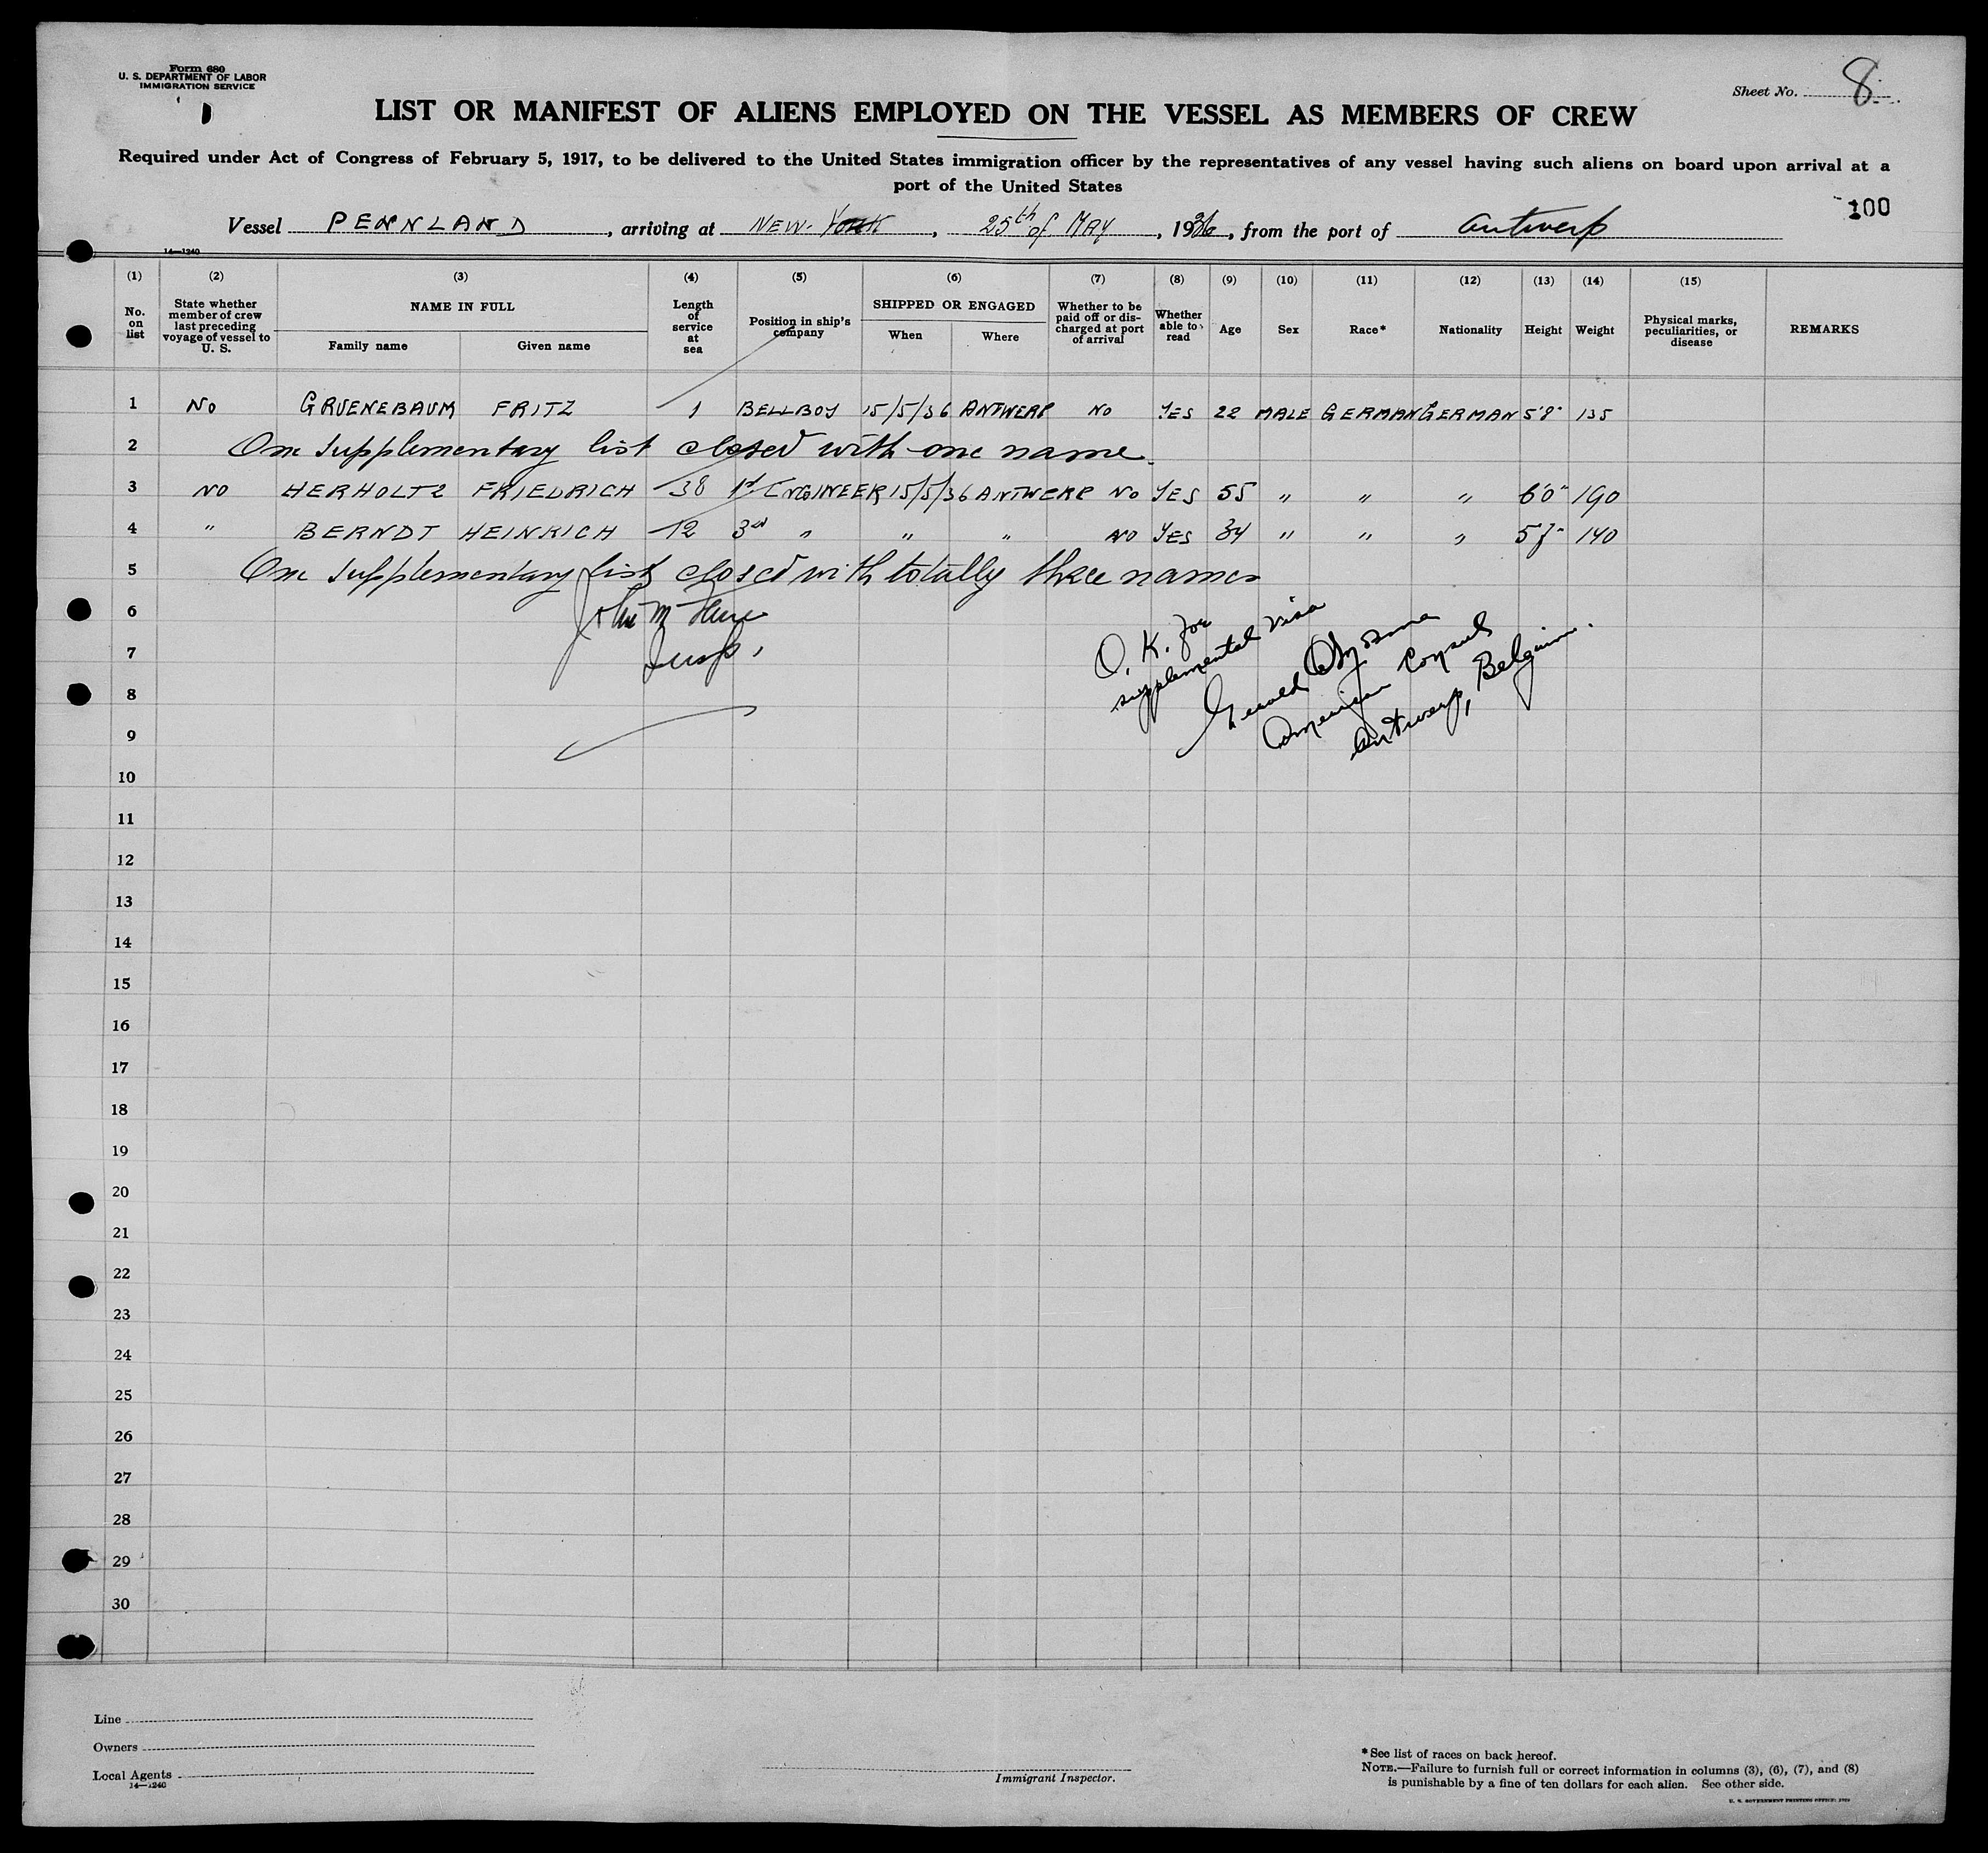 Form 680
U. S. DEPARTMENT OF LABOR
IMMIGRATION SERVICE
Sheet No. 8
LIST OR MANIFEST OF ALIENS EMPLOYED ON THE VESSEL AS MEMBERS OF CREW
Required under Act of Congress of February 5, 1917, to be delivered to the United States immigration officer by the representatives of any vessel having such aliens on board upon arrival at a
port of the United States
100
Vessel PENNLAND, arriving at NEW-YORK, 25th of MAY, 1936, from the port of Antwerp
14—1240
(1) (2) (3) (4) (5) (6) (7) (8) (9) (10) (11) (12) (13) (14) (15)
No. on list
State whether member of crew last preceding voyage of vessel to U. S.
NAME IN FULL
Family name
Given name
Length of service at sea
Position in ship's company
SHIPPED OR ENGAGED
When
Where
Whether to be paid off or discharged at port of arrival
Whether able to read
Age
Sex
Race*
Nationality
Height
Weight
Physical marks, peculiarities, or disease
REMARKS
1 No GRUENEBAUM FRITZ 1 BELLBOY 15/5/36 ANTWERP NO YES 22 MALE GERMAN GERMAN 5'8" 135
2 One Supplementary list closed with one name.
3 NO HERHOLTZ FRIEDRICH 38 1st ENGINEER 15/5/36 ANTWERP NO YES 55 " " " 6'0" 190
4 " BERNDT HEINRICH 12 3rd " " " NO YES 34 " " " 140
5 One Supplementary list closed with totally three names
6 John M
7 Insp.
O. K. for
supplemental visa
Gerald
American Consul
Antwerp, Belgium.
8
9
10
11
12
13
14
15
16
17
18
19
20
21
22
23
24
25
26
27
28
29
30
Line
Owners
Local Agents
14—1240
Immigrant Inspector.
*See list of races on back hereof.
NOTE.—Failure to furnish full or correct information in columns (3), (6), (7), and (8)
is punishable by a fine of ten dollars for each alien. See other side.